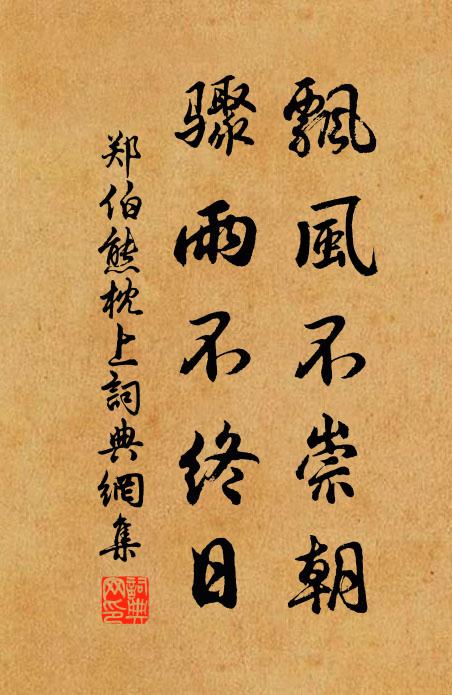 飄風不崇朝
驟雨不终日
郑伯熊枕上詞典網集
詞典網印